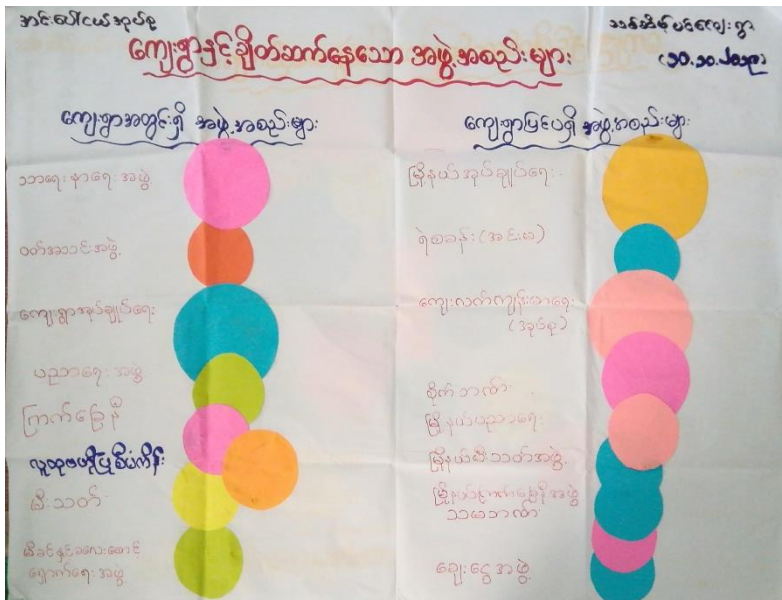 အင်းပေါငယ်အုပ်စု
သစ်ဆိမ့်ပင်ကျေးရွာ
ကျေးရွာနှင့်ချိတ်ဆက်နေသော အဖွဲ့အစည်းများ
(၁၀.၁၀.၂၀၁၉)
ကျေးရွာအတွင်းရှိ အဖွဲ့အစည်းများ
သာရေးနာရေးအဖွဲ့
ဝတ်အသင်းအဖွဲ့
ကျေးရွာအုပ်ချုပ်ရေး
ပညာရေးအဖွဲ့
ကြက်ခြေနီ
လူထုဗဟိုပြုစီမံကိန်း
မီးသတ်
မိခင်နှင့်ကလေးစောင့်
ရှောက်ရေးအဖွဲ့
ကျေးရွာပြင်ပရှိ အဖွဲ့အစည်းများ
မြို့နယ်အုပ်ချုပ်ရေး
ရဲစခန်း(အင်းမ)
ကျေးလက်ကျန်းမာရေး
(အုပ်စု)
စိုက်ဘဏ်
မြို့နယ်ပညာရေး
မြို့နယ်မီးသတ်အဖွဲ့
မြို့နယ်ကြက်ခြေနီအဖွဲ့
သမဘဏ်
ချေးငွေအဖွဲ့